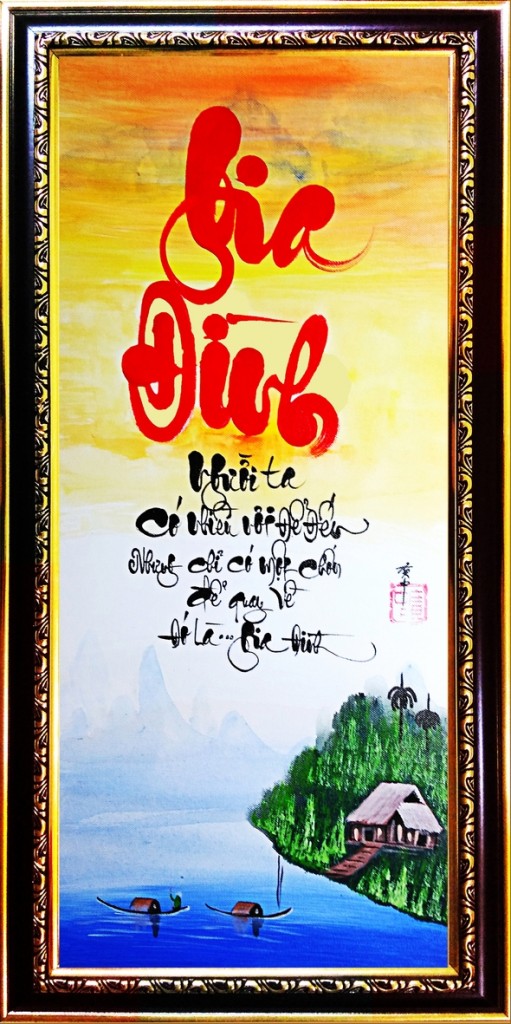 Gia
Đình
Người ta
Có nhiều nơi Để Đến
Nhưng chỉ có một chốn
Để quay Về
Đó Là... Gia Đình